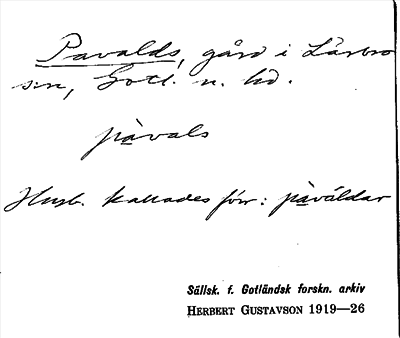 Pavalds, gård i Lärbro
sn, Gotl. n. hd.
pàvals
Husb. kallades förr: pàváldar
Sällsk. f. Gotländsk forskn. arkiv
HERBERT GUSTAVSON 1919—26